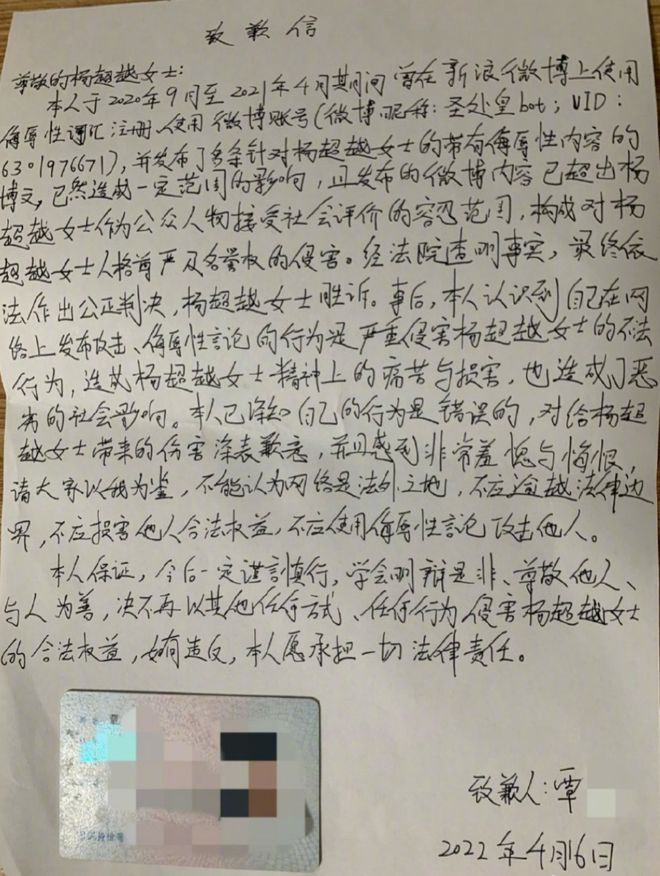 致歉信
尊敬的杨超越女士:
本人于2020年9月至2021年4月期间曾在新浪微博上使用
侮辱性词汇注册、使用微博账号(微博昵称:圣处皇bot;UID:
6301976671),并发布了多条针对杨超越女士的带有侮辱性内容的
博文,已然造成一定范围的影响,且发布的微博内容已超出杨
超越女士作为公众人物接受社会评价的容忍范围,构成对杨
超越女士人格尊严及名誉权的侵害。经法院查明事实,最终依
法作出公正判决,杨超越女士胜诉。事后,本人认识到自己在网
络上发布攻击、侮辱性言论的行为是严重侵害杨超越女士的不法
行为,造成杨超越女士精神上的痛苦与损害,也造成了恶
劣的社会影响。本人已深知自己的行为是错误的,对给杨超
越女士带来的伤害深表歉意,并且感到非常羞愧与悔恨,
请大家以我为鉴,不能认为网络是法外之地,不应逾越法律边
界,不应损害他人合法权益,不应使用侮辱性言论攻击他人。
本人保证,今后一定谨言慎行,学会明辩是非、尊敬他人、
与人为善,决不再以其他任何方式、任何行为侵害杨超越女士
的合法权益,如有违反,本人愿承担一切法律责任。
致歉人:覃
2022年4月16日